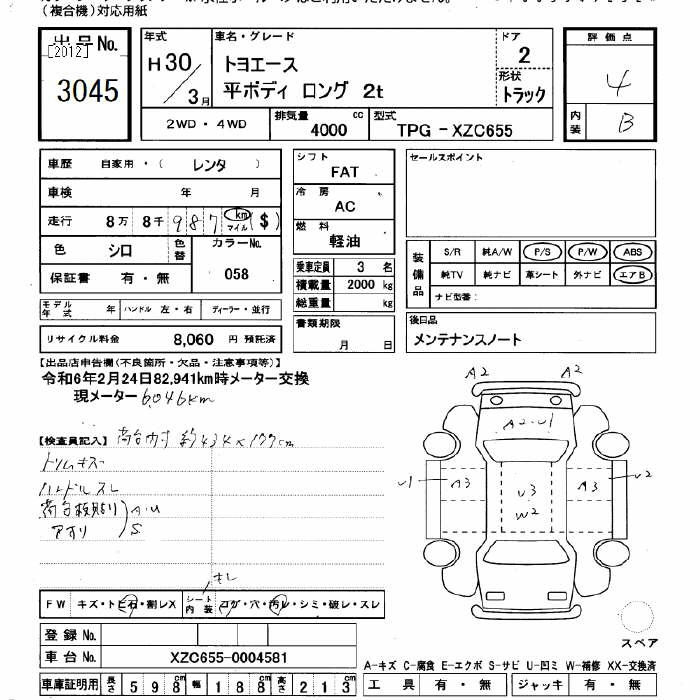 （複合機）対応用紙
出品No. [2012] 3045
年式 H30 / 3月
車名・グレード トヨエース 平ボディ ロング 2t
ドア 2
形状 トラック
評価点 4
内装 B
2WD・4WD
排気量 4000 cc
型式 TPG-XZC655
車歴 自家用・（ レンタ ）
車検 年 月
走行 8万 8千 987 km マイル ($)
色 シロ 色替 カラーNo. 058
保証書 有・無
モデル年式 年 ハンドル 左・右 ディーラー・並行
リサイクル料金 8,060 円 預託済
シフト FAT
冷房 AC
燃料 軽油
乗車定員 3 名
積載量 2000 kg
総重量 kg
書類期限 月 日
セールスポイント
装備品 S/R 純A/W P/S P/W ABS
純TV 純ナビ 革シート 外ナビ エアB
ナビ型番：
後日品
メンテナンスノート
【出品店申告欄(不良箇所・欠品・注意事項等)】
令和6年2月24日82,941km時メーター交換
現メーター 6,046km
【検査員記入】 荷台内寸 約434×177cm
トリムキズ
ハンドルスレ
荷台板貼り A・U
アオリ S
A2 A2
A2・U1
U1 A3 U3 W2 A3 U2
FW キズ・トビ石・割レX
シート内装 コゲ・穴・汚レ・シミ・破レ・スレ
キレ
登録No.
車台No. XZC655-0004581
車庫証明用 長さ 598 cm 幅 188 cm 高さ 213 cm
スペア
A-キズ C-腐食 E-エクボ S-サビ U-凹ミ W-補修 XX-交換済
工具 有・無 ジャッキ 有・無